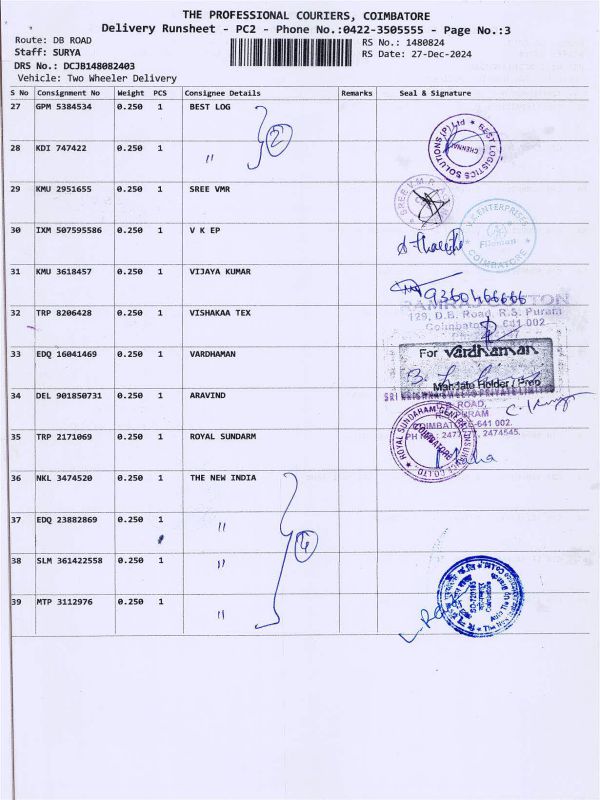 THE PROFESSIONAL COURIERS, COIMBATORE
Delivery Runsheet - PC2 - Phone No.:0422-3505555 - Page No.:3
Route: DB ROAD
RS No.: 1480824
Staff: SURYA
RS Date: 27-Dec-2024
DRS No.: DCJB148082403
Vehicle: Two Wheeler Delivery
S No Consignment No Weight PCS Consignee Details Remarks Seal & Signature
27 GPM 5384534 0.250 1 BEST LOG
2
28 KDI 747422 0.250 1 "
BEST LOGISTICS SOLUTIONS (P) Ltd
CHENNAI
29 KMU 2951655 0.250 1 SREE VMR
SREE V M R
30 IXM 507595586 0.250 1 V K EP
ENTERPRISES
COIMBATORE
31 KMU 3618457 0.250 1 VIJAYA KUMAR
9360466666
32 TRP 8206428 0.250 1 VISHAKAA TEX
129, D.B. Road, R.S. Puram
Coimbatore 641 002
33 EDQ 16041469 0.250 1 VARDHAMAN
For Vardhaman
Mandate Holder / Prop
34 DEL 901850731 0.250 1 ARAVIND
ROAD,
PURAM
COIMBATORE-641 002.
2474545.
35 TRP 2171069 0.250 1 ROYAL SUNDARM
ROYAL SUNDARAM GENERAL INSURANCE CO LTD.
COIMBATORE
36 NKL 3474520 0.250 1 THE NEW INDIA
37 EDQ 23882869 0.250 1 "
4
38 SLM 361422558 0.250 1 "
39 MTP 3112976 0.250 1 "